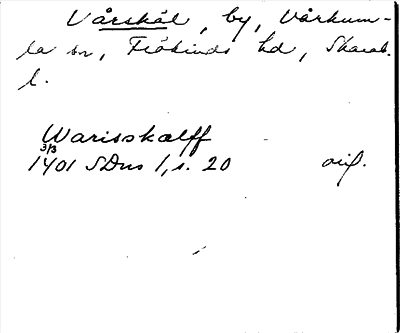 Vårskäl, by, Vårkum-
la sn, Frökinds hd, Skarab.
l.
Warisskalff
3/3
1401 SDns 1, s. 20 avs.